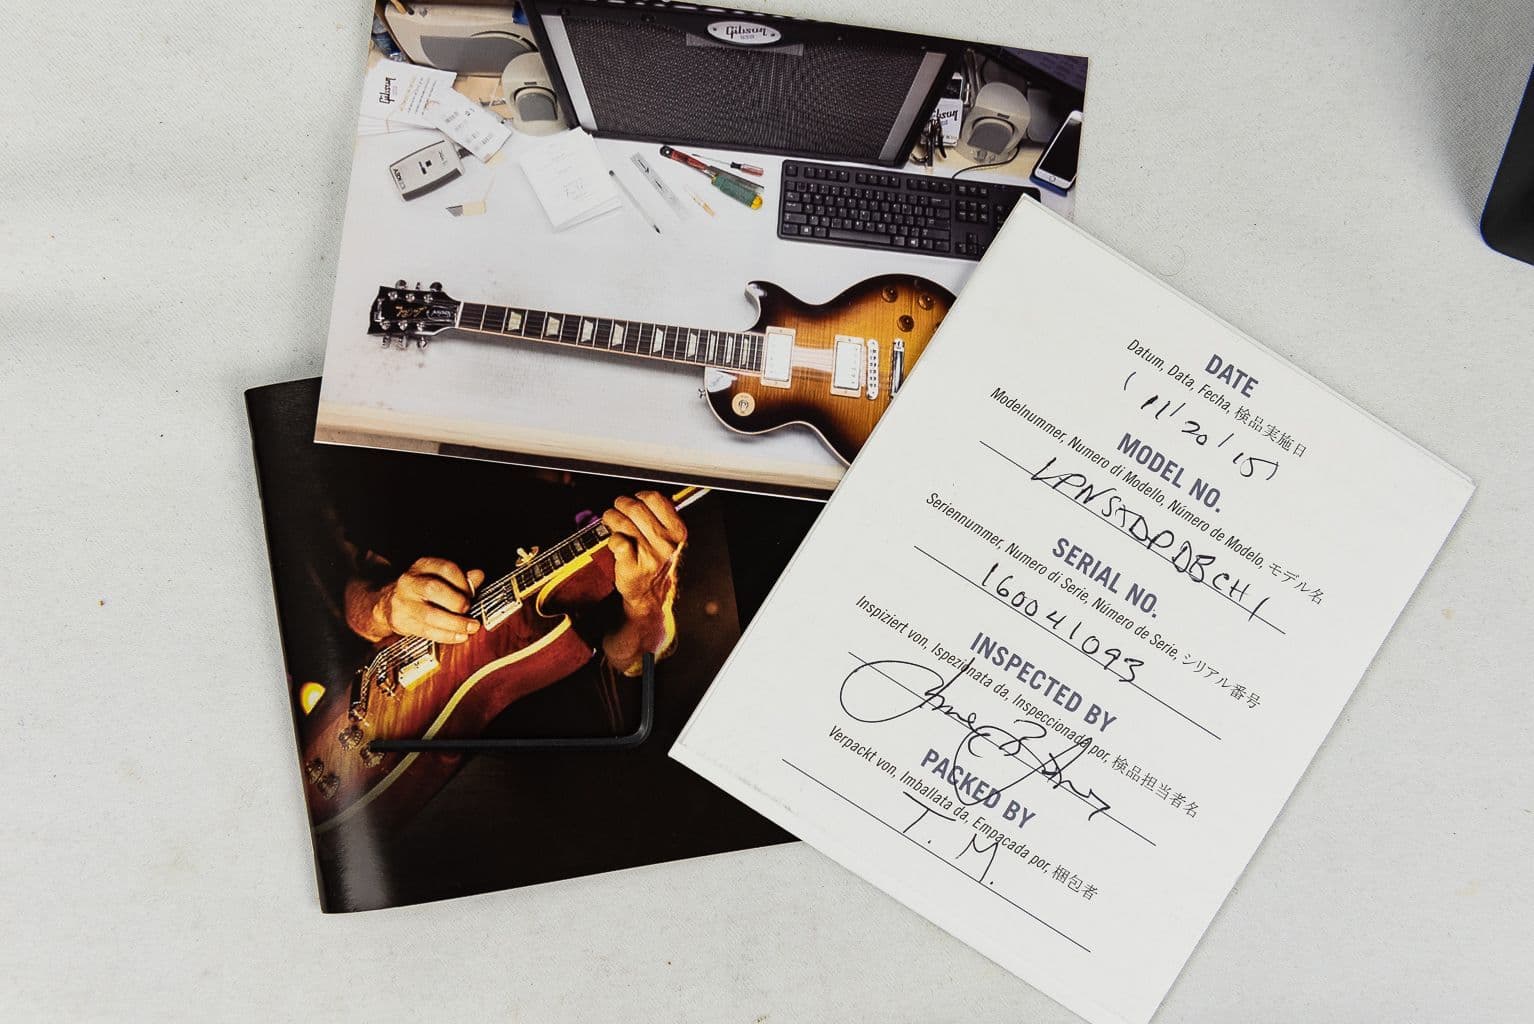 Gibson
Gibson
Gibson
DATE
Datum, Data, Fecha, 検品実施日
11/20/15
MODEL NO.
Modelnummer, Numero di Modello, Número de Modelo, モデル名
LPNSTDPDBCH1
SERIAL NO.
Seriennummer, Numero di Serie, Número de Serie, シリアル番号
160041093
INSPECTED BY
Inspiziert von, Ispezionata da, Inspeccionada por, 検品担当者名
PACKED BY
Verpackt von, Imballata da, Empacada por, 梱包者
T. M.